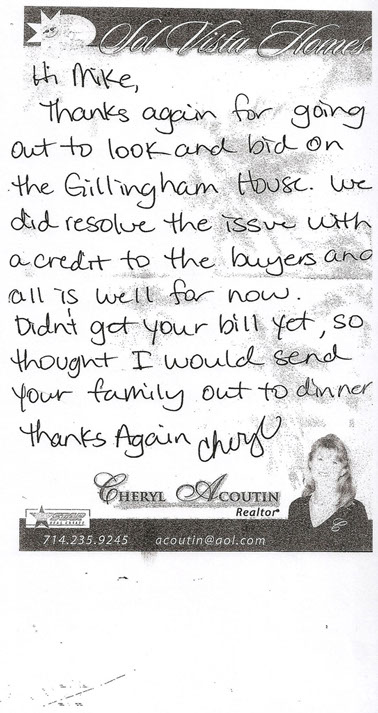 Sol Vista Homes
Hi Mike,
Thanks again for going
out to look and bid on
the Gillingham House. We
did resolve the issue with
a credit to the buyers and
all is well for now.
Didn't get your bill yet, so
thought I would send
your family out to dinner
Thanks Again Cheryl
CHERYL ACOUTIN
Realtor®
REAL ESTATE
714.235.9245 acoutin@aol.com